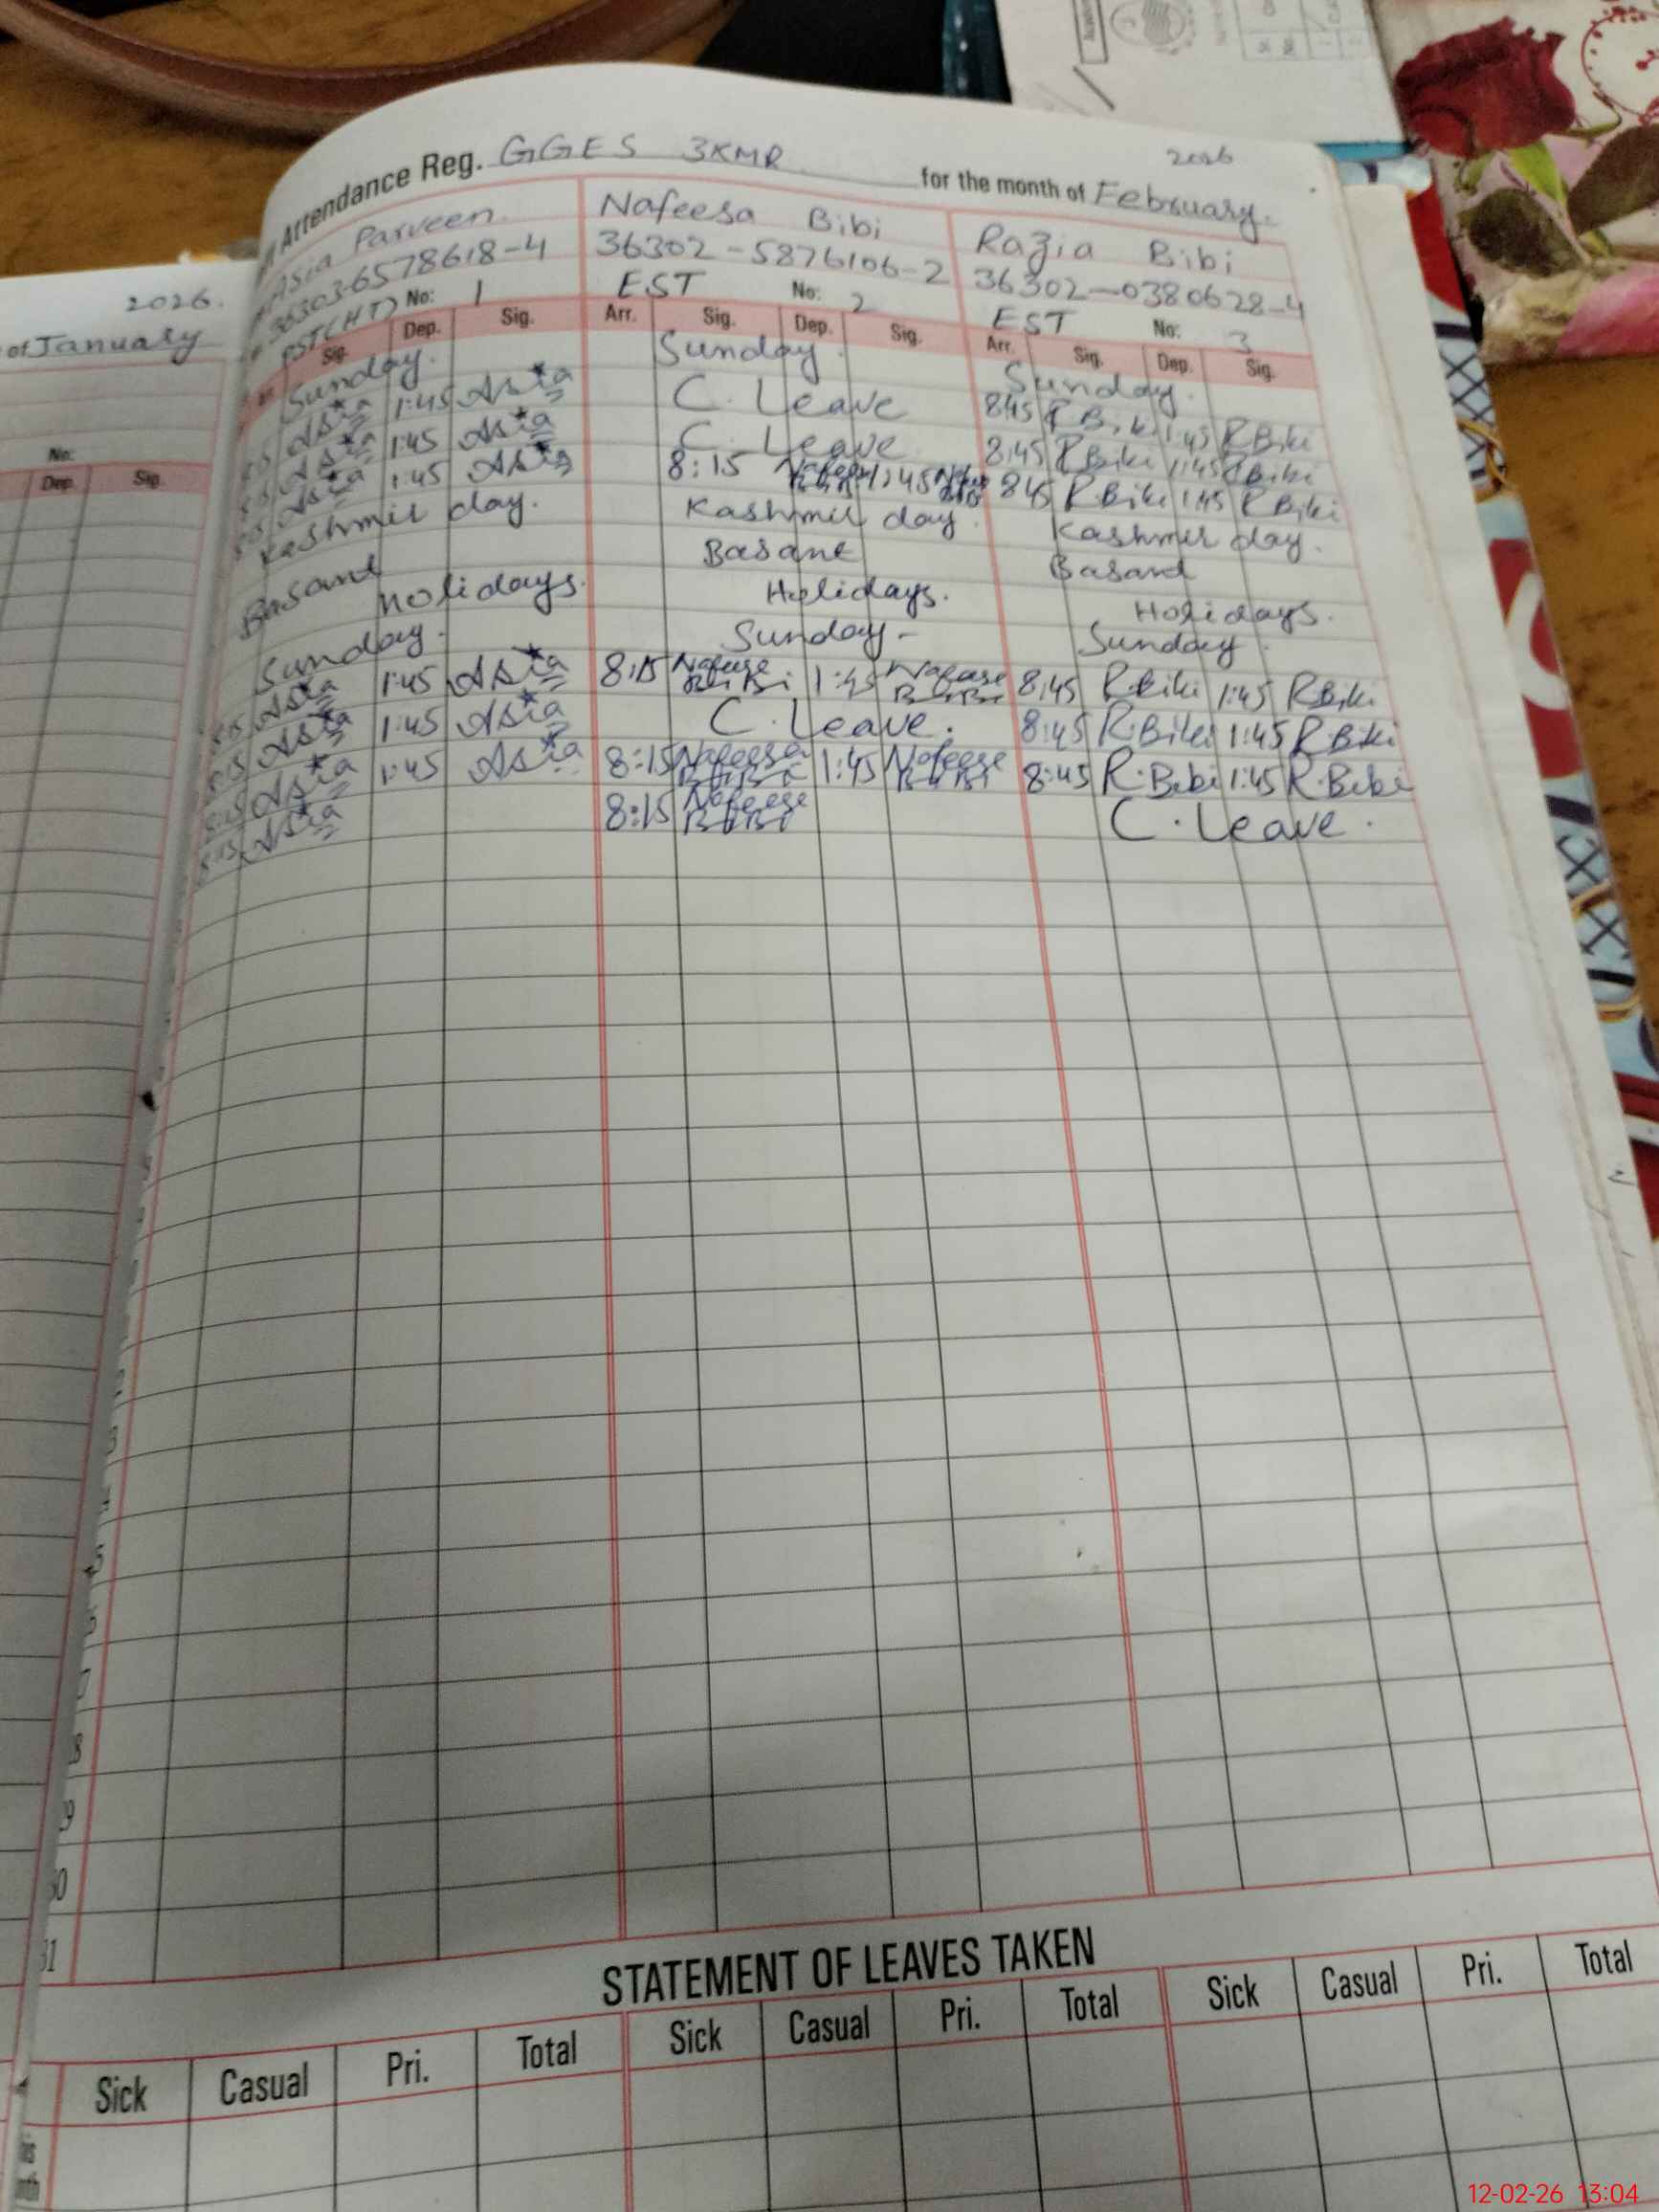 Attendance Reg. GGES 3KMR for the month of February. 2026
Asia Parveen
36303-6578618-4
PST(HT) No: 1
Nafeesa Bibi
36302-5876106-2
EST No: 2
Razia Bibi
36302-0380628-4
EST No: 3
Sig. Dep. Sig. Arr. Sig. Dep. Sig. Arr. Sig. Dep. Sig.
Sunday. Sunday. Sunday.
Asia 1:45 Asia C. Leave 8:45 R Bibi 1:45 R Bibi
Asia 1:45 Asia C. Leave 8:45 R Bibi 1:45 R Bibi
Asia 1:45 Asia 8:15 Nafeesa Bibi 1:45 Nafeesa Bibi 8:45 R Bibi 1:45 R Bibi
Kashmir day. Kashmir day. Kashmir day.
Basant Basant Basant
Holidays. Holidays. Holidays.
Sunday. Sunday- Sunday.
Asia 1:45 Asia 8:15 Nafeesa Bibi 1:45 Nafeesa Bibi 8:45 R Bibi 1:45 R Bibi
Asia 1:45 Asia C. Leave. 8:45 R.Bibi 1:45 R Bibi
8:15 Asia 1:45 Asia 8:15 Nafeesa Bibi 1:45 Nafeesa Bibi 8:45 R.Bibi 1:45 R.Bibi
8:15 Asia 8:15 Nafeesa Bibi C. Leave.
9
31
STATEMENT OF LEAVES TAKEN
Sick Casual Pri. Total Sick Casual Pri. Total Sick Casual Pri. Total
2026.
of January
No:
Dep. Sig.
12-02-26 13:04